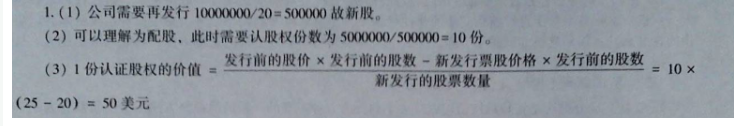 1.(1) 公司需要再发行 10000000/20=500000 故新股。
(2) 可以理解为配股，此时需要认股权份数为 5000000/500000=10 份。
(3) 1 份认证股权的价值 = 发行前的股价 × 发行前的股数 - 新发行票股价格 × 发行前的股数 / 新发行的股票数量 = 10 ×
(25 - 20) = 50 美元